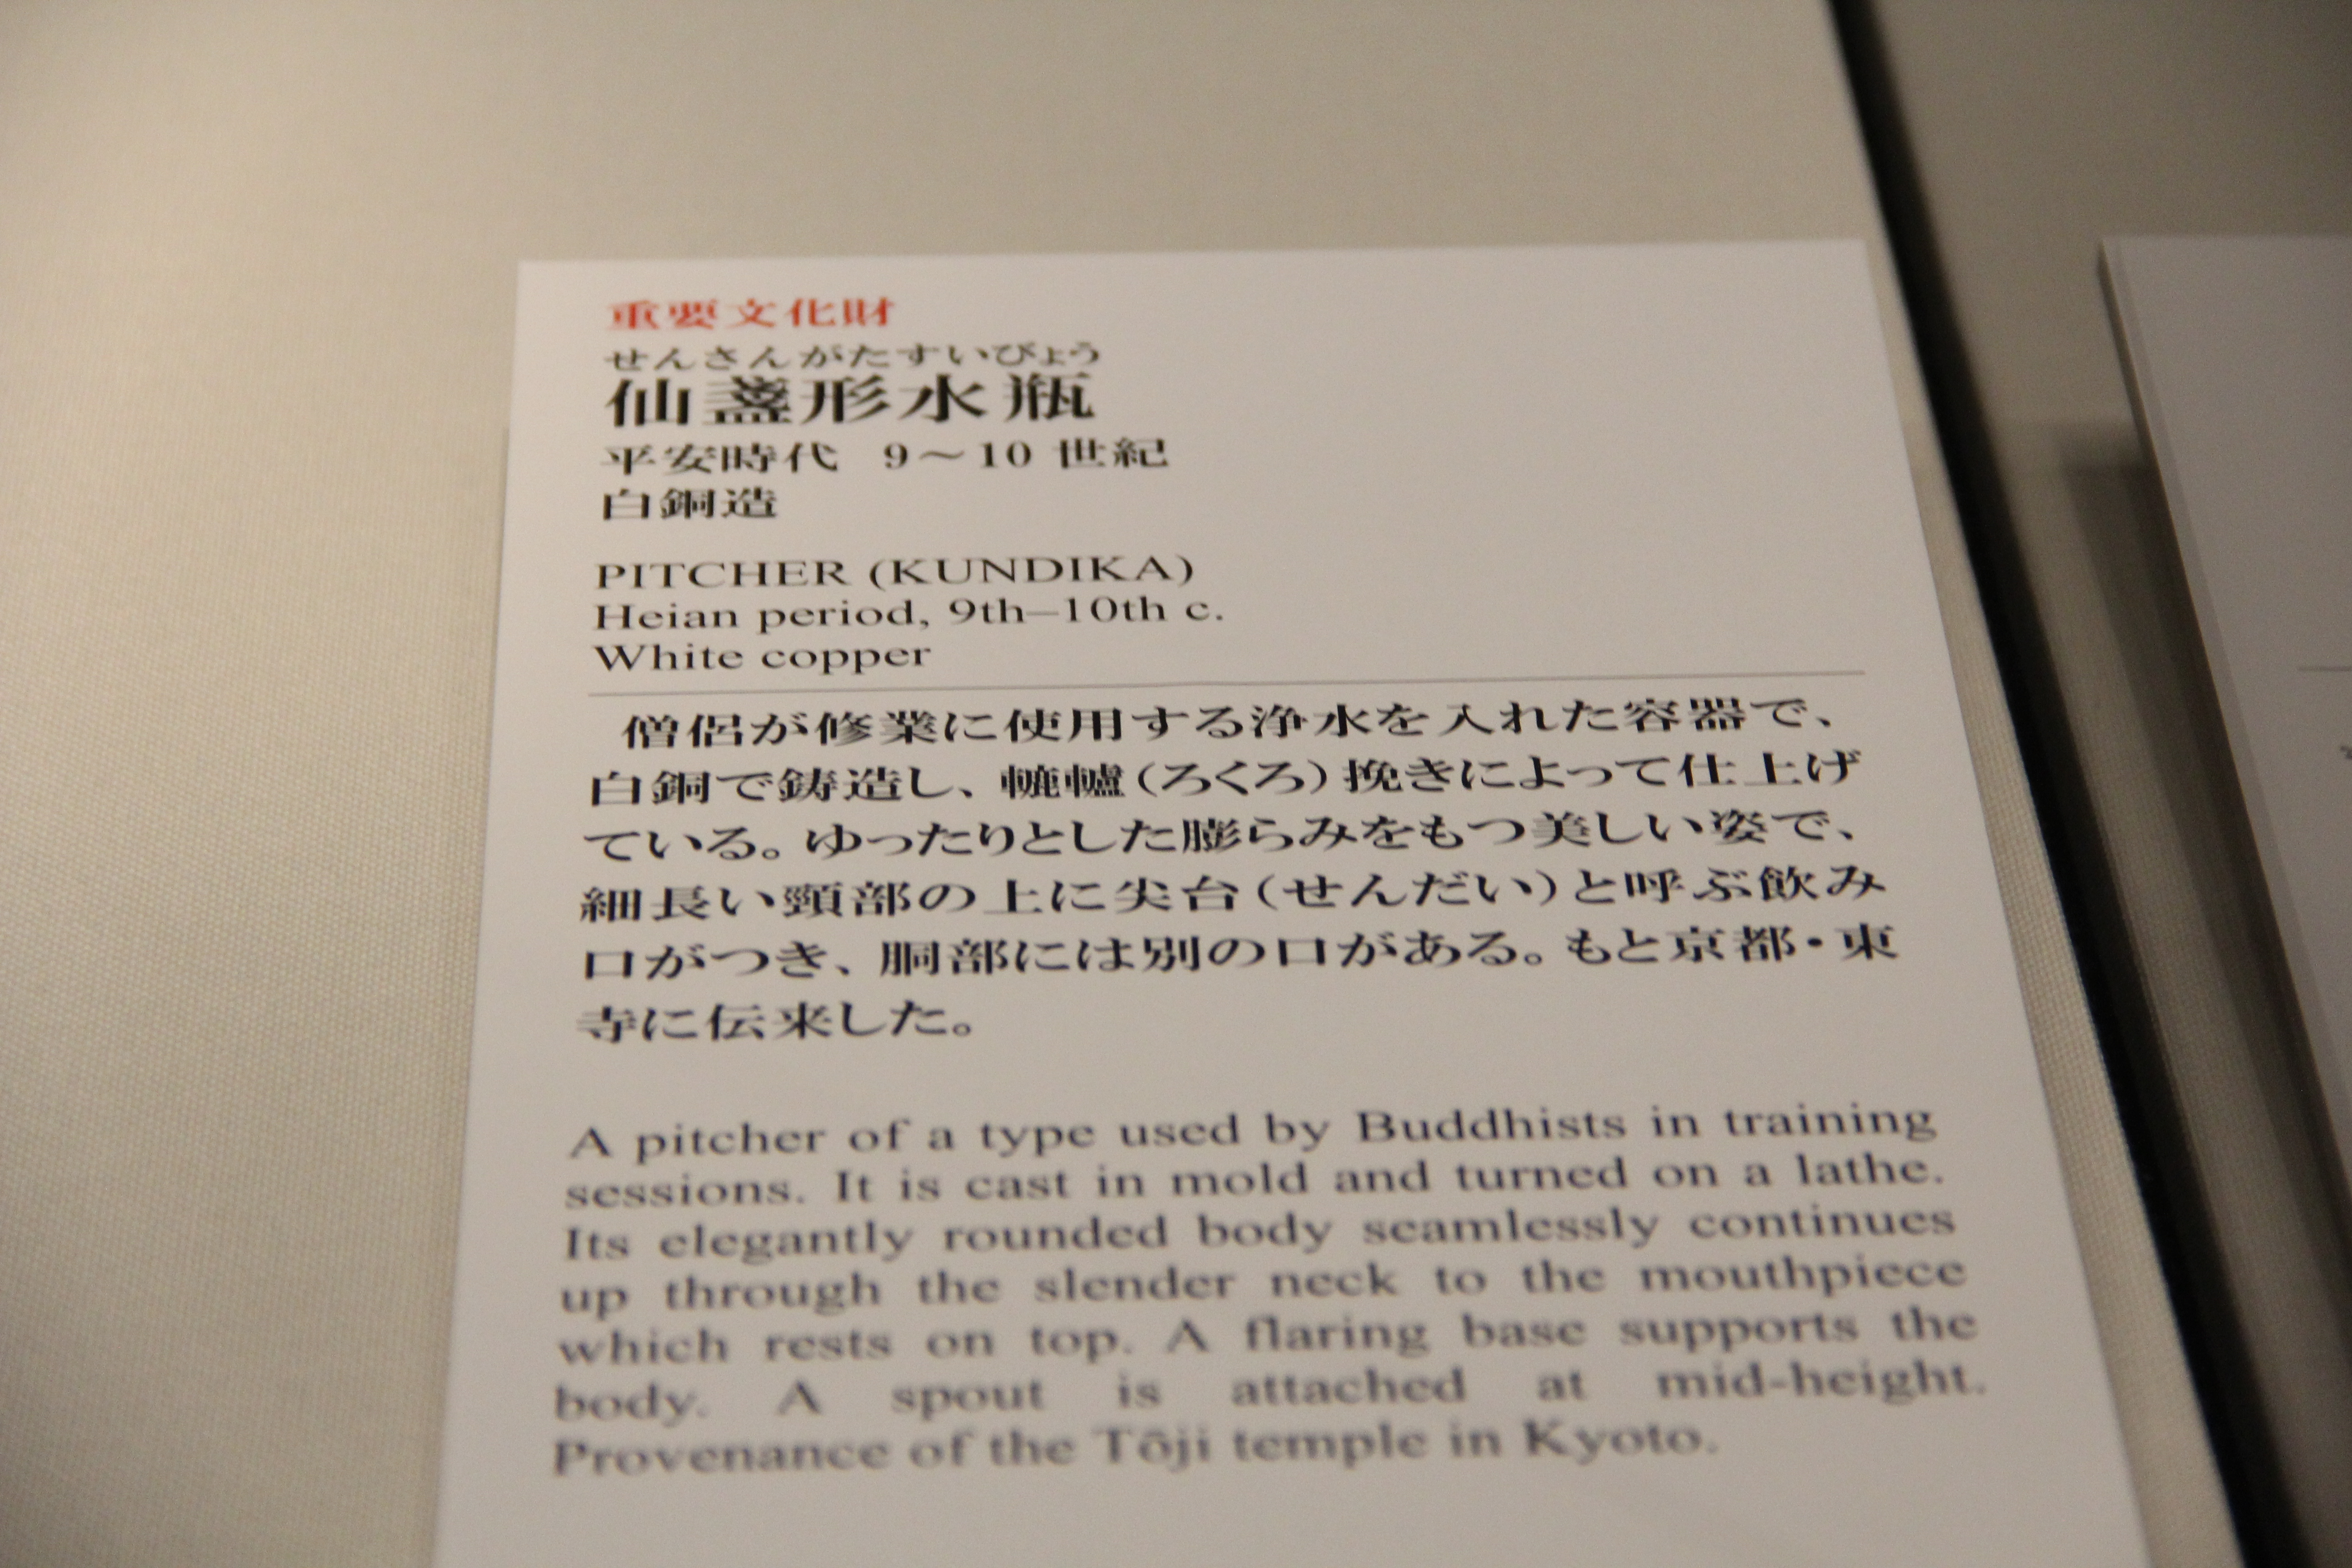 重要文化財
せんさんがたすいびょう
仙盞形水瓶
平安時代 9〜10 世紀
白銅造
PITCHER (KUNDIKA)
Heian period, 9th–10th c.
White copper
僧侶が修業に使用する浄水を入れた容器で、
白銅で鋳造し、轆轤(ろくろ)挽きによって仕上げ
ている。ゆったりとした膨らみをもつ美しい姿で、
細長い頸部の上に尖台(せんだい)と呼ぶ飲み
口がつき、胴部には別の口がある。もと京都・東
寺に伝来した。
A pitcher of a type used by Buddhists in training
sessions. It is cast in mold and turned on a lathe.
Its elegantly rounded body seamlessly continues
up through the slender neck to the mouthpiece
which rests on top. A flaring base supports the
body. A spout is attached at mid-height.
Provenance of the Tōji temple in Kyoto.